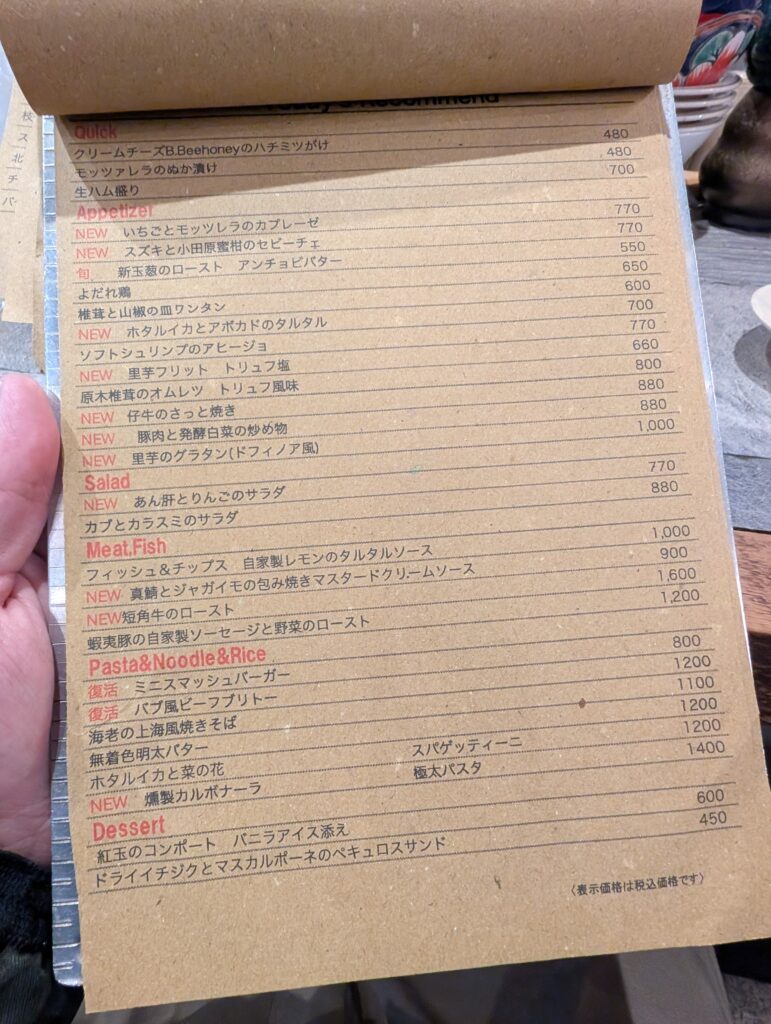 Today's Recommend
Quick
クリームチーズB.Beehoneyのハチミツがけ 480
モッツァレラのぬか漬け 480
生ハム盛り 700
Appetizer
NEW いちごとモッツレラのカプレーゼ 770
NEW スズキと小田原蜜柑のセビーチェ 770
旬 新玉葱のロースト アンチョビバター 550
よだれ鶏 650
椎茸と山椒の皿ワンタン 600
NEW ホタルイカとアボカドのタルタル 700
ソフトシュリンプのアヒージョ 770
NEW 里芋フリット トリュフ塩 660
原木椎茸のオムレツ トリュフ風味 800
NEW 仔牛のさっと焼き 880
NEW 豚肉と発酵白菜の炒め物 880
NEW 里芋のグラタン(ドフィノア風) 1,000
Salad
NEW あん肝とりんごのサラダ 770
カブとカラスミのサラダ 880
Meat,Fish
フィッシュ&チップス 自家製レモンのタルタルソース 1,000
NEW 真鯖とジャガイモの包み焼きマスタードクリームソース 900
NEW短角牛のロースト 1,600
蝦夷豚の自家製ソーセージと野菜のロースト 1,200
Pasta&Noodle&Rice
復活 ミニスマッシュバーガー 800
復活 バブ風ビーフブリトー 1200
海老の上海風焼きそば 1100
無着色明太バター スパゲッティーニ 1200
ホタルイカと菜の花 極太パスタ 1200
NEW 燻製カルボナーラ 1400
Dessert
紅玉のコンポート バニラアイス添え 600
ドライイチジクとマスカルポーネのペキュロスサンド 450
〈表示価格は税込価格です〉
枝
ス
北
チ
バ